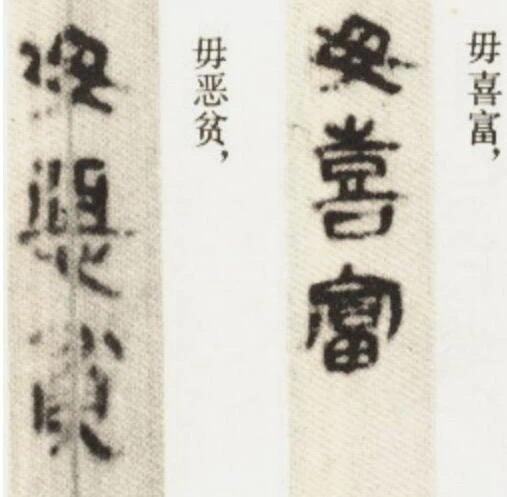 毋喜富,
毋喜富
毋恶贫,
毋惡貧